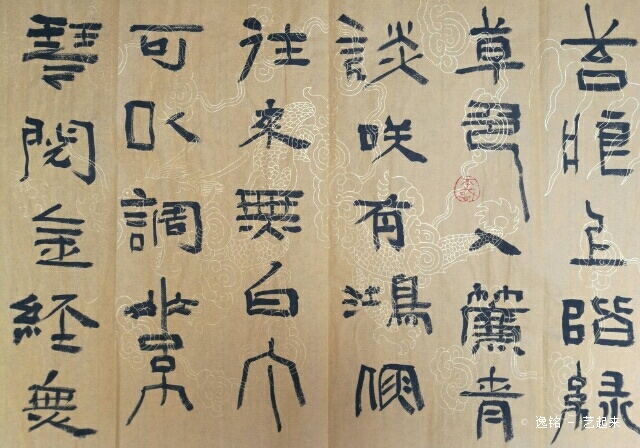 苔痕上階綠
草色入簾青
談咲有鴻儒
往來無白丁
可以調素
琴閱金經無
© 逸铭 - 艺起来